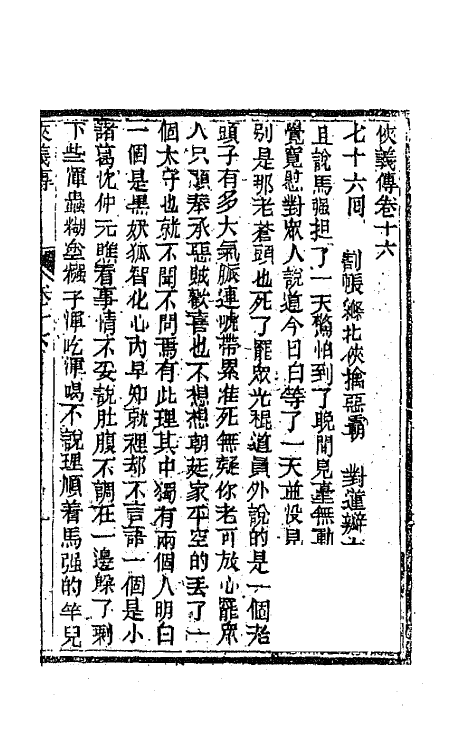 俠義傳卷十六
七十六回 割帳縧北俠擒惡霸 對蓮瓣太
且說馬强担了一天驚怕到了晚間見毫無動
覺寬慰對眾人說道今日白等了一天並没見
别是那老蒼頭也死了罷眾光棍道員外說的是一個老
頭子有多大氣脈連唬帶累准死無疑你老可放心罷眾
人只顧奉承惡賊歡喜也不想想朝廷家平空的丢了一
個太守也就不聞不問焉有此理其中獨有兩個人明白
一個是黑妖狐智化心内早知就裡却不言語一個是小
諸葛沈仲元瞧着事情不妥說肚腹不調在一邊躱了剩
下些渾蟲糊塗癩子渾吃渾喝不說理順着馬强的竿兒
俠義傳 卷十六